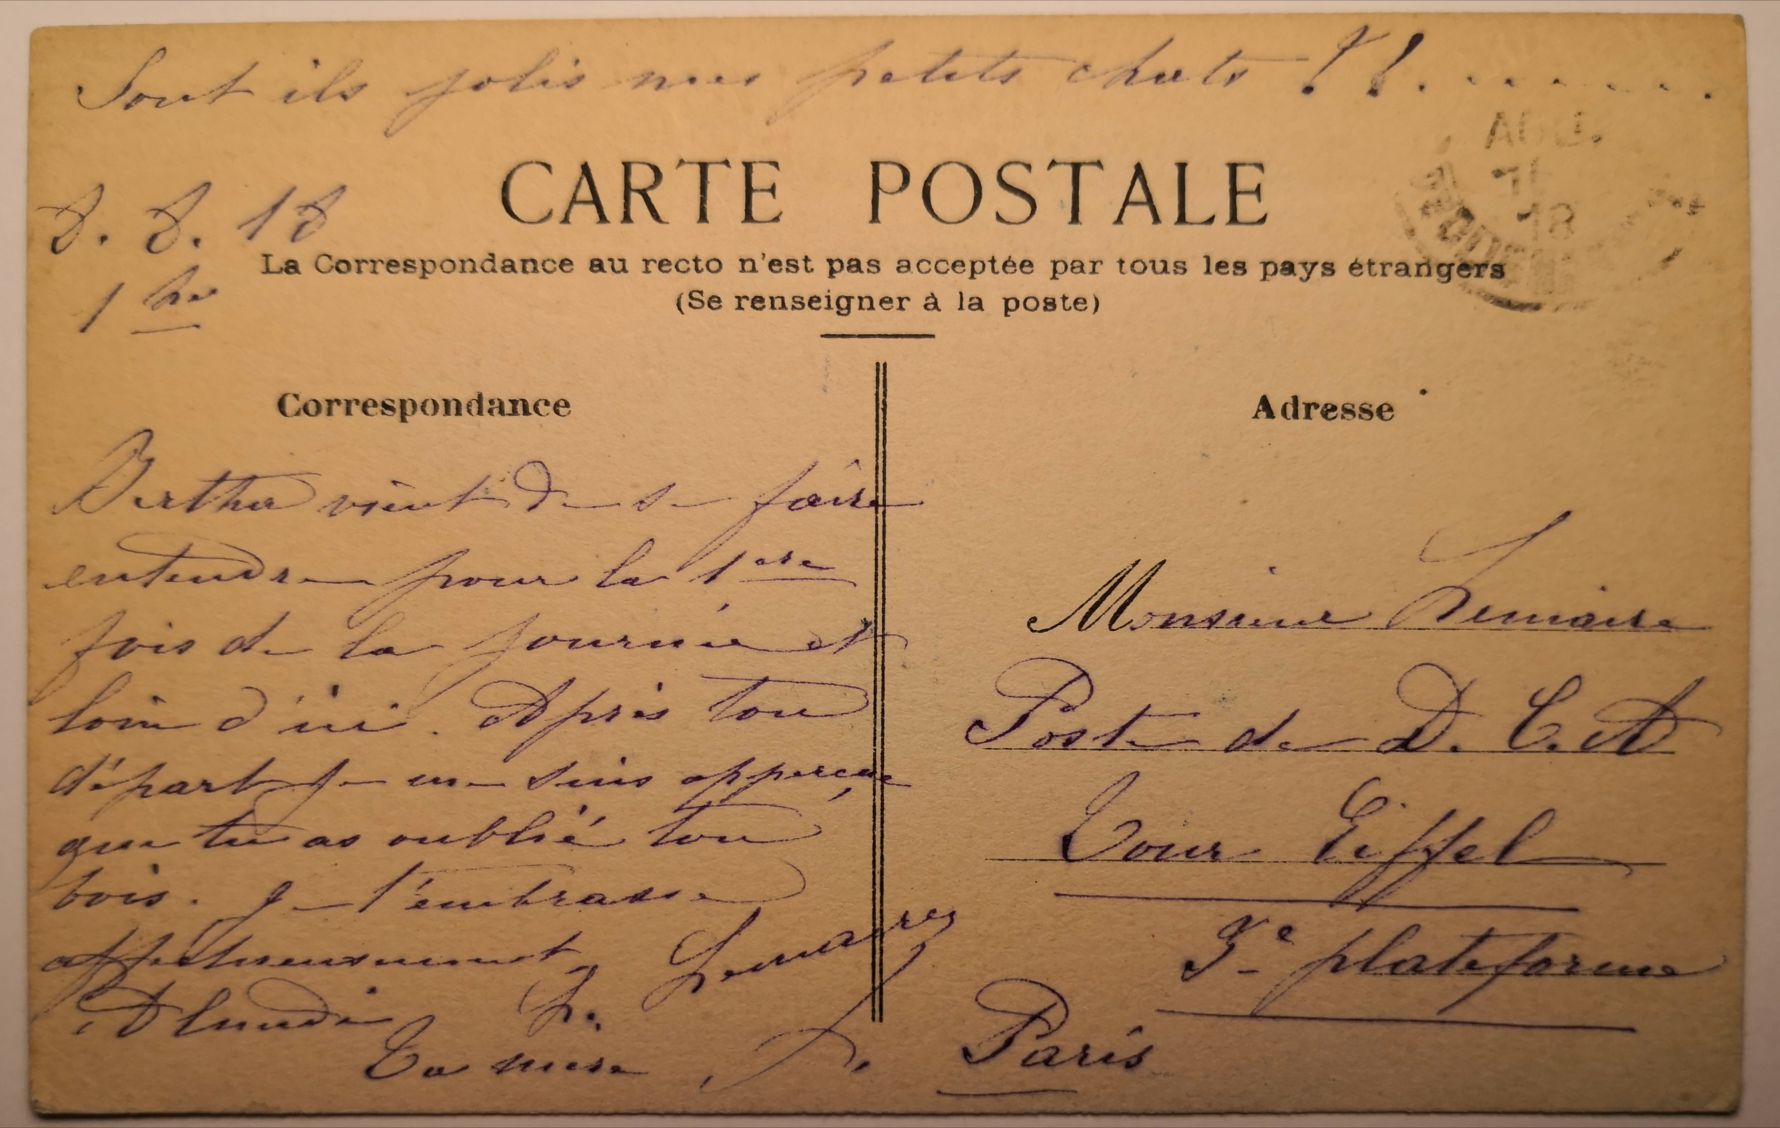 Sont ils jolis mes petits chats !! . . . . . . .
8. 8. 18
1 he
CARTE POSTALE
La Correspondance au recto n'est pas acceptée par tous les pays étrangers
(Se renseigner à la poste)
AOU.
18
Correspondance
Bertha vient de se faire
entendre pour la 1ere
fois de la journée et
loin d'ici. Après ton
départ je me suis apperçue
que tu as oublié ton
bois. Je t'embrasse
affectueusement
A lundi L. Lemaire
Ta mère
Adresse
Monsieur Lemaire
Poste de D. C. A
Tour Eiffel
3e plateforme
Paris